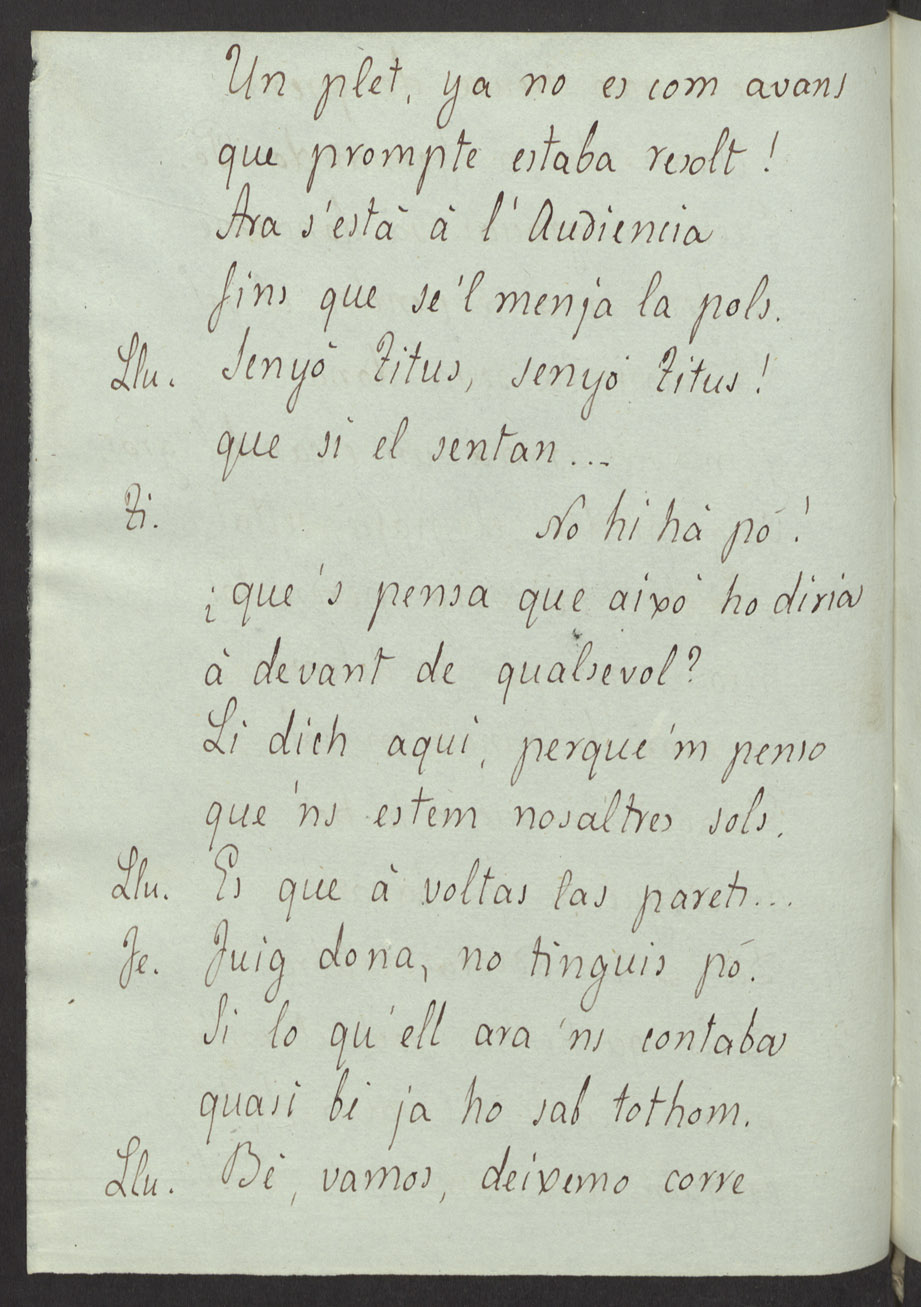 Un plet, ya no es com avans
que prompte estaba resolt!
Ara s'està à l'Audiencia
fins que se'l menja la pols.
Llu. Senyó Titus, senyó Titus!
que si el sentan...
Ti. No hi hà pó!
¿que 's pensa que aixó ho diria
à devant de qualsevol?
Li dich aqui, perque 'm penso
que 'ns estem nosaltres sols.
Llu. Es que à voltas las parets...
Je. Fuig dona, no tinguis pó.
Si lo qu'ell ara 'ns contaba
quasi bé ja ho sab tothom.
Llu. Bé, vamos, deixemo corre